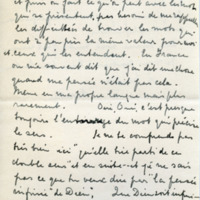 et puis on fait ce qu'on peut avec les mots
qui se présentent, pas besoin de me rappeler
les difficultés de trouver les mots qui
ont à peu près la même valeur pour
et ceux qui les entendent. En France
on me souvent dit que j'en dit
quand ma pensée n'était pas cela.
même en ma propre langue mais plus
rarement. Oui Oui, c'est presque
toujours l'entourage du mot qui précise
le sens. Je ne te comprends pas
très bien ici "qu'elle tire parti de ce
double sens" et en suite - et ça ne sais
pas ce que tu veux dire par "la pensée
infinie de Dieu". Que Dieu soit